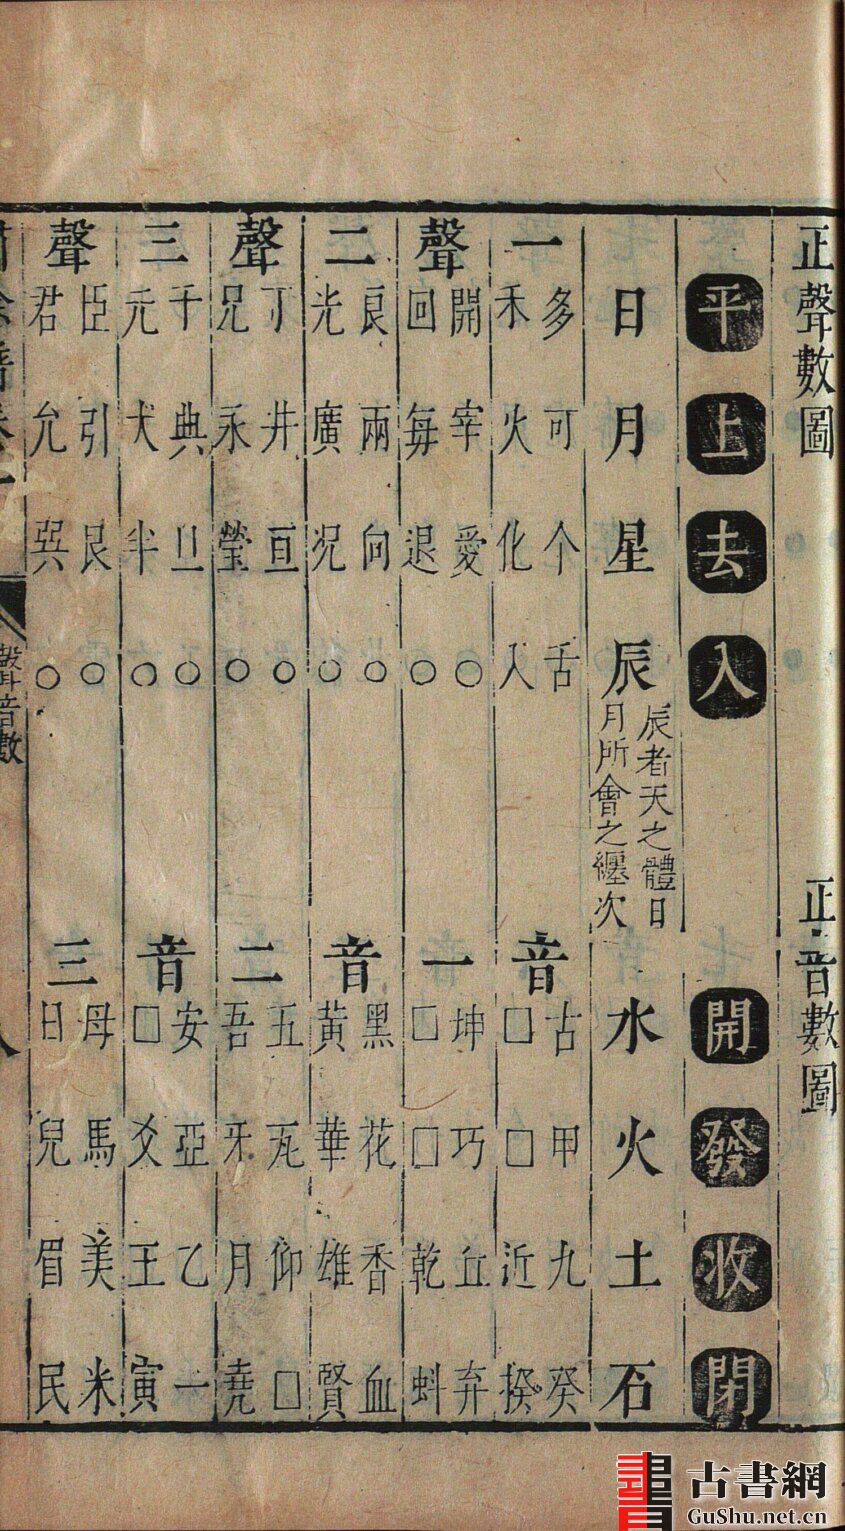 正聲數圖
正音數圖
平上去入
開發收閉
日月星辰
辰者天之體日
月所會之纏次
水火土石
一
多可个舌
禾火化人
音
古甲九癸
□□近揆
聲
開宰愛○
回每退○
一
坤巧丘弃
□□乾蚪
二
良兩向○
光廣況○
音
黑花香血
黃華雄賢
聲
丁井亘○
兄永瑩○
二
五瓦仰□
吾牙月堯
三
千典旦○
元犬半○
音
安亞乙一
□爻王寅
聲
臣引艮○
君允巽○
三
母馬美米
目皃眉民
聲音數
古書網
GuShu.net.cn